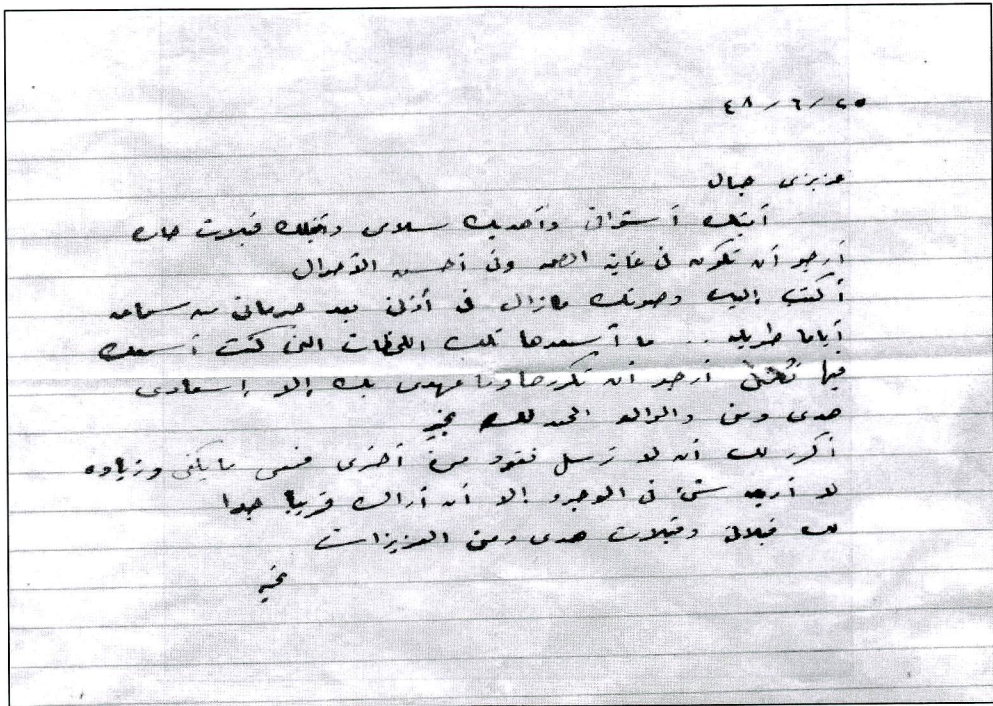 ٢٥/٦/٤٨
عزيزى جمال
أبثك أشواقى وأهديك سلامى وأقبلك قبلات حاره
أرجو أن تكون فى غاية الصحه وفى أحسن الأحوال
أكتب إليك وصوتك مازال فى أذنى بعد حرمانى من سماعه
أياما طويله .. ما أسعدها تلك اللحظات التى كنت أسمعك
فيها أرجو أن تكررها وما عهدى بك إلا إسعادى
هدى ومنى والوالد الحمد لله بخير
أكرر لك أن لا ترسل نقود مرة أخرى فمعى ما يكفى وزياده
لا أريد شئ فى الوجود إلا أن أراك قريبا جدا
لك قبلاتى وقبلات هدى ومنى العزيزات
تحيه